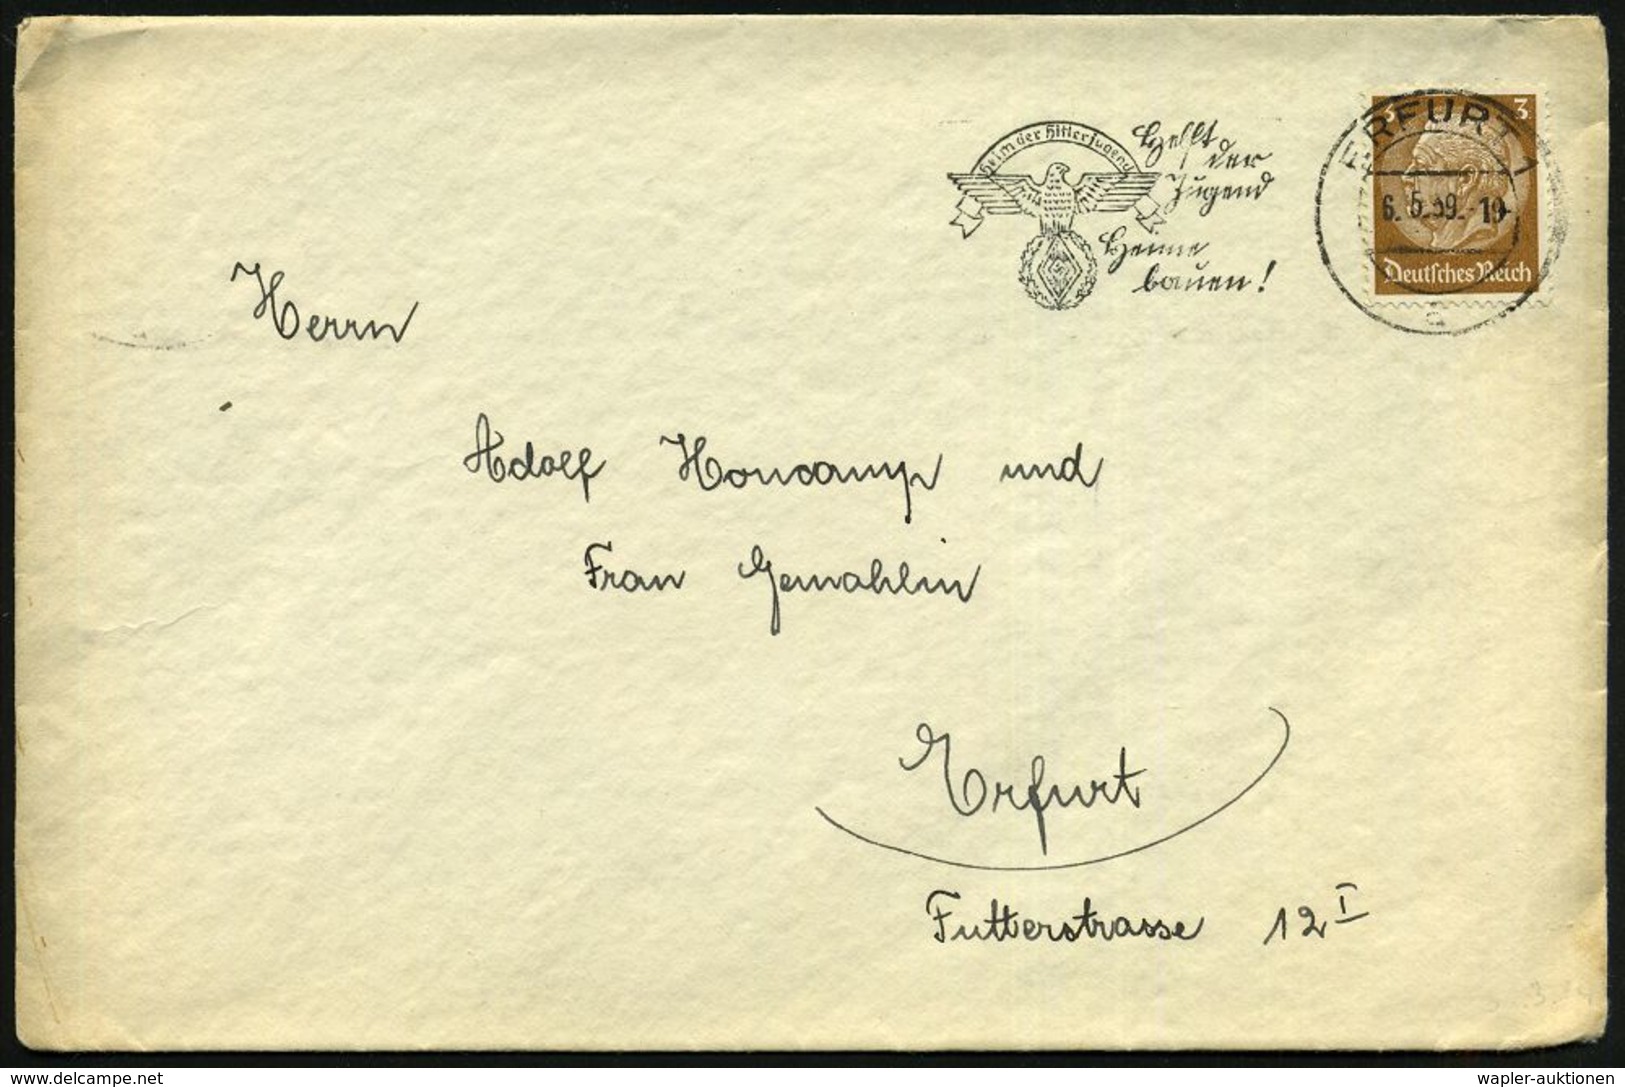 Heim der Hitlerjugend
Helft
der
Jugend
Heime
bauen!
ERFURT 1
3 3
6.5.39.-19
Deutsches Reich
a
Herrn
Adolf Honcamp und
Frau Gemahlin
Erfurt
Futterstrasse 12 I
wapler-auktionen